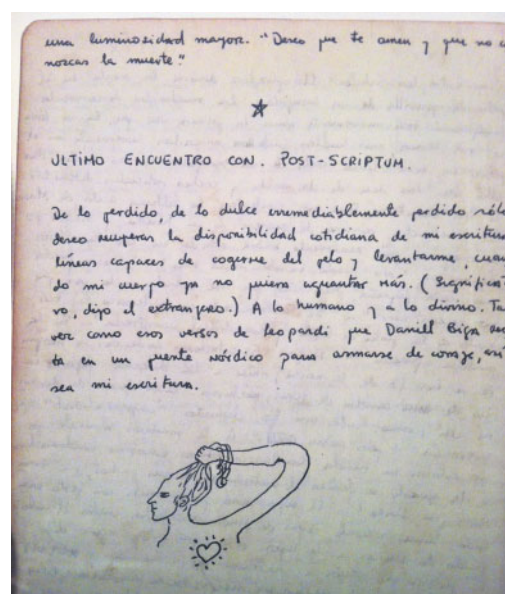 una luminosidad mayor. "Deseo que te amen y que no co
nozcas la muerte."
ULTIMO ENCUENTRO CON. POST-SCRIPTUM.
De lo perdido, de lo dulce irremediablemente perdido sólo
deseo recuperar la disponibilidad cotidiana de mi escritura
líneas capaces de cogerme del pelo y levantarme, cuan
do mi cuerpo ya no quiera aguantar más. (Significati
vo, dijo el extranjero.) A lo humano y a lo divino. Tal
vez como esos versos de Leopardi que Daniel Biga reci
ta en un puente nórdico para armarse de coraje, así
sea mi escritura.